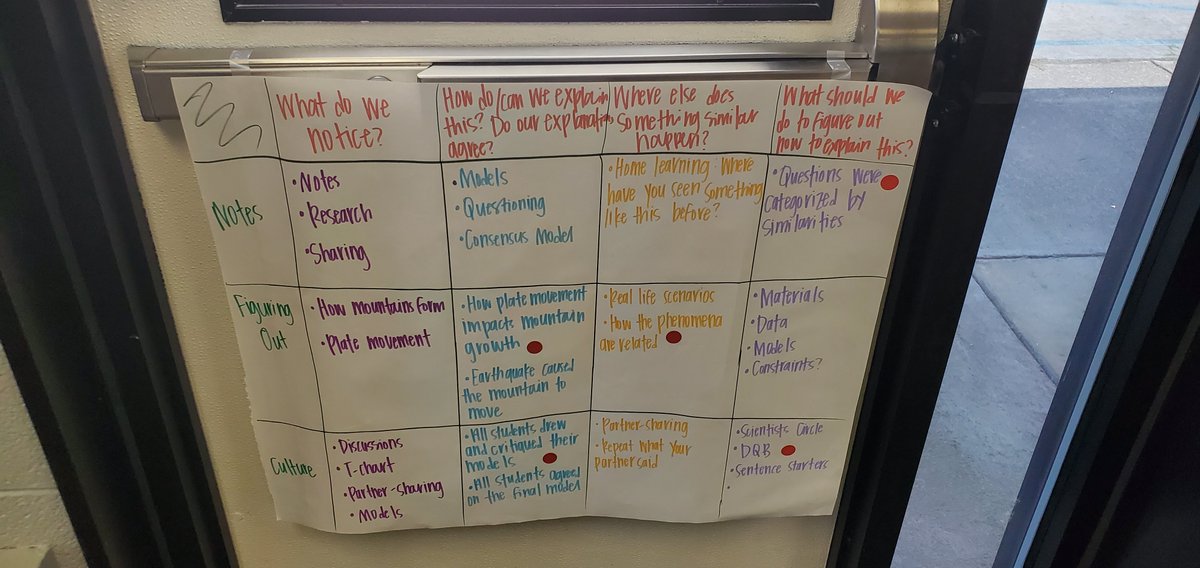 What do we
notice?
How do/can we explain
this? Do our explanations
agree?
Where else does
something similar
happen?
What should we
do to figure out
how to explain this?
Notes
• Notes
• Research
• Sharing
• Models
• Questioning
• Consensus Model
• Home learning: Where
have you seen something
like this before?
• Questions were
categorized by
similarities
Figuring
Out
• How mountains form
• Plate movement
• How plate movement
impacts mountain
growth
• Earthquake caused
the mountain to
move
• Real life scenarios
• How the phenomena
are related
• Materials
• Data
• Models
• Constraints?
Culture
• Discussions
• T-chart
• Partner-sharing
• Models
• All students drew
and critiqued their
models
• All students agreed
on the final model
• Partner-sharing
• Repeat what your
partner said
• Scientists Circle
• DQB
• Sentence starters
•